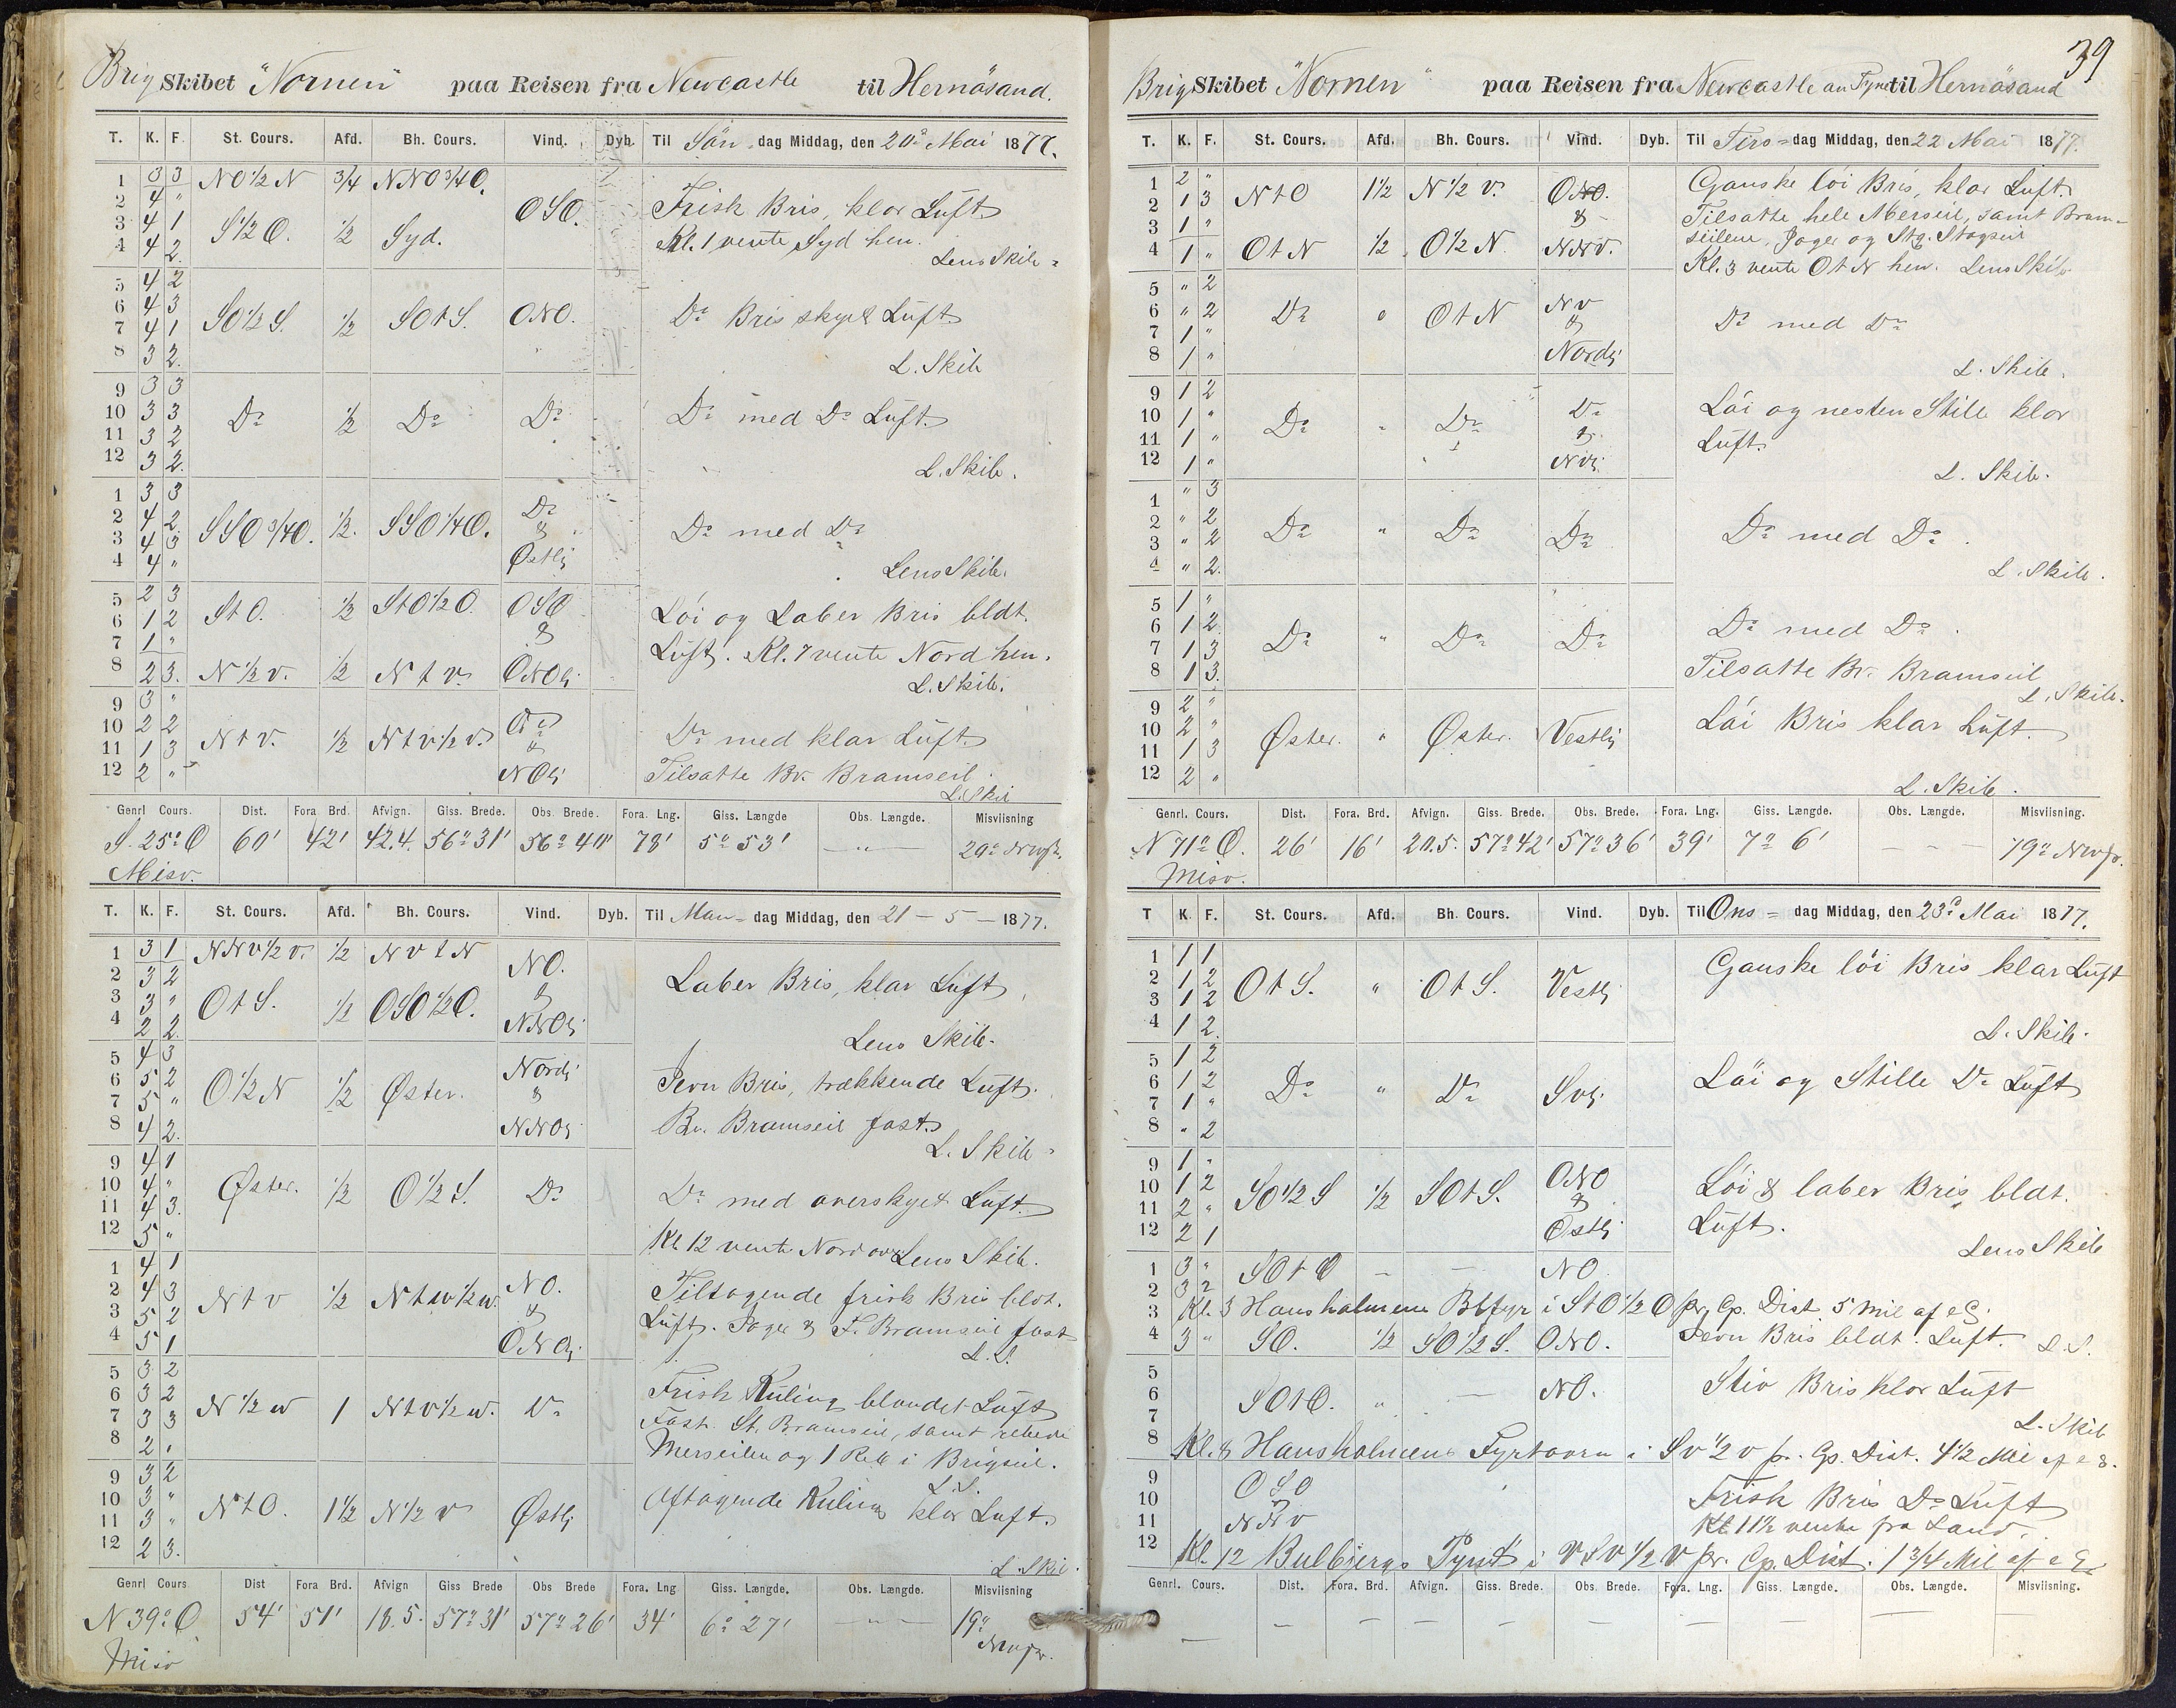 Brig Skibet "Nornen" paa Reisen fra Newcastle til Hernösand.
T. K. F. St. Cours. Afd. Bh. Cours. Vind. Dyb. Til Søn-dag Middag, den 20de Mai 1877.
1 3 3 NO½N ¾ NNO¾O. OSO. Frisk Bris, klar Luft
2 4 "
3 4 1 S½O. ½ Syd. Kl. 1 vente Syd hen.
4 4 2 Lens Skib
5 4 2
6 4 3 SO½S. ½ SOtS. ONO. Do Bris skyet Luft
7 4 1
8 3 2 L. Skib
9 3 3
10 3 3 Do ½ Do Do Do med Do Luft.
11 3 2
12 3 2 L. Skib.
1 3 3
2 4 2 SSO¾O. ½ SSO¼O. Do & Østlig Do med Do
3 4 3
4 4 " Lens Skib.
5 2 3
6 1 2 StO. ½ StO½O. OSO & Löi og Laber Bris bldt.
7 1 " Luft. Kl. 7 vente Nord hen.
8 2 3 N½v. ½ Ntv. ONOlig L. Skib.
9 3 "
10 2 2 Ntv. ½ Ntv½v. Do & NOlig Do med klar Luft.
11 1 3 Tilsatte Bv. Bramseil.
12 2 " L. Skib
Genrl Cours. Dist. Fora Brd. Afvign. Giss. Brede. Obs. Brede. Fora. Lng. Giss. Længde Obs. Længde. Misviisning
S. 25° O 60' 42' 42.4. 56° 31' 56° 40' 78' 5° 53' — " — 20°
Misv.
T. K. F. St. Cours. Afd. Bh. Cours. Vind. Dyb. Til Man-dag Middag, den 21 - 5 - 1877.
1 3 1 NNv½v. ½ NvtN NO. & NNOlig
2 3 2 Laber Bris, klar Luft
3 3 " OtS. ½ OSO½O.
4 2 2 Lens Skib.
5 4 3
6 5 2 O½N ½ Øster. Nordlig & NNOlig Jevn Bris, trækkende Luft.
7 5 " Bv. Bramseil fast.
8 4 2 L. Skib
9 4 1
10 4 " Øster. ½ O½S. Do Do med overskyet Luft.
11 4 3
12 5 " Kl 12 vente Nord over Lens Skib.
1 4 1
2 4 3 Ntv ½ Ntw½w. NO. & ONOlig Tiltagende frisk Bris bldt.
3 5 2 Luft. Jager & F. Bramseil fast
4 5 1 L. S.
5 3 2
6 3 2 N½w 1 Ntv½w. Do Frisk Kuling blandet Luft
7 3 3 Fast St. Bramseil, samt rebede
8 2 , Merseilen og 1 Reb i Brigseil.
L. S.
9 3 2
10 3 " NtO. 1½ N½v Østlig Aftagende Kuling klar Luft.
11 3 "
12 2 3 L. Skib.
Genrl Cours Dist Fora Brd. Afvign Giss Brede Obs Brede Fora. Lng Giss. Længde. Obs. Længde. Misviisning
N 39° O 54' 51' 18.5. 57° 31' 57° 26' 34' 6° 27' — " — 19°
Misv
39
Brig Skibet "Nornen" paa Reisen fra Newcastle on Tyne til Hernösand
T. K. F. St. Cours. Afd. Bh. Cours. Vind. Dyb. Til Tirs-dag Middag, den 22 Mai 1877.
1 2 " Ganske löi Bris, klar Luft.
2 1 3 NtO 1½ N½v. ONO. & NNv. Tilsatte hele Merseil, samt Bram-
3 1 " seilene, Jager og Stg. Stagseil
4 1 " OtN ½ O½N Kl. 3 vente OtN hen. Lens Skib
5 " 2
6 " 2 Do " OtN Nv & Nordlig Do med Do
7 1 "
8 1 " L. Skib.
9 1 2 Löi og nesten Stille klar
10 1 " Do " Do Do & Nvlig Luft.
11 1 "
12 1 " L. Skib.
1 " 3
2 " 2 Do " Do Do Do med Do.
3 " 2
4 " 2 L. Skib.
5 1 "
6 1 2 Do " Do Do Do med Do.
7 1 3 Tilsatte Bv. Bramseil
8 1 3 L. Skib.
9 2 " Löi Bris klar Luft.
10 2 " Øster. " Øster. Vestlig
11 1 3
12 2 " L. Skib.
Genrl. Cours. Dist. Fora. Brd. Afvign. Giss. Brede. Obs. Brede. Fora. Lng. Giss. Længde. Obs. Længde. Misviisning.
N 71° O. 26' 16' 20.5. 57° 42' 57° 36' 39' 7° 6' — — — 19°
Misv.
T K. F. St. Cours. Afd. Bh. Cours. Vind. Dyb. Til Ons-dag Middag, den 23de Mai 1877.
1 1 1 Ganske löi Bris klar Luft
2 1 2 OtS. " OtS. Vestlig
3 1 2
4 1 2 L. Skib.
5 1 2
6 1 2 Do " Do Svlig Löi og Stille Do Luft
7 1 "
8 " 2
9 1 "
10 1 2 SO½S ½ SOtS. ONO & Østlig Löi & laber Bris bldt.
11 2 " Luft.
12 2 1 Lens Skib
1 3 " SOtO — — NO
2 3 2
3 Kl. 3 Hansholmens Blfyr i StO½O pr. Cp. Dist. 5 Mil af
4 3 " SO. ½ SO½S. ONO. Jevn Bris bldt. Luft. L. S.
5
6 SOtO. " — NO. Stiv Bris klar Luft
7 L. Skib
8 Kl. 8 Hansholmens Fyrtaarn i Sv½v pr. Cp. Dist. 4½ Mil af
9 OSO
10 Frisk Bris Do Luft
11 NNv Kl 11½ vente fra Land.
12 Kl. 12 Bulbjergs Pynt i VSV½V pr. Cp. Dist. 1¾ Mil af
Genrl. Cours. Dist. Fora. Brd. Afvign. Giss. Brede. Obs. Brede. Fora. Lng. Giss. Længde. Obs. Længde. Misviisning.
— — — — — — — — — —